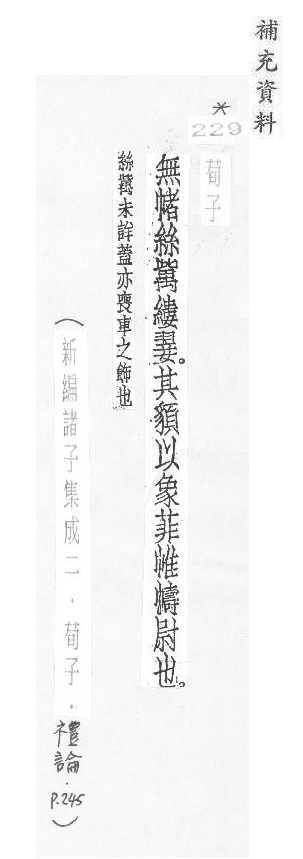 補充資料
*
229
荀子
無帾絲歶縷翣。其䫉以象菲帷幬尉也。
絲歶未詳蓋亦喪車之飾也
(新編諸子集成二.荀子.禮論.P.245)